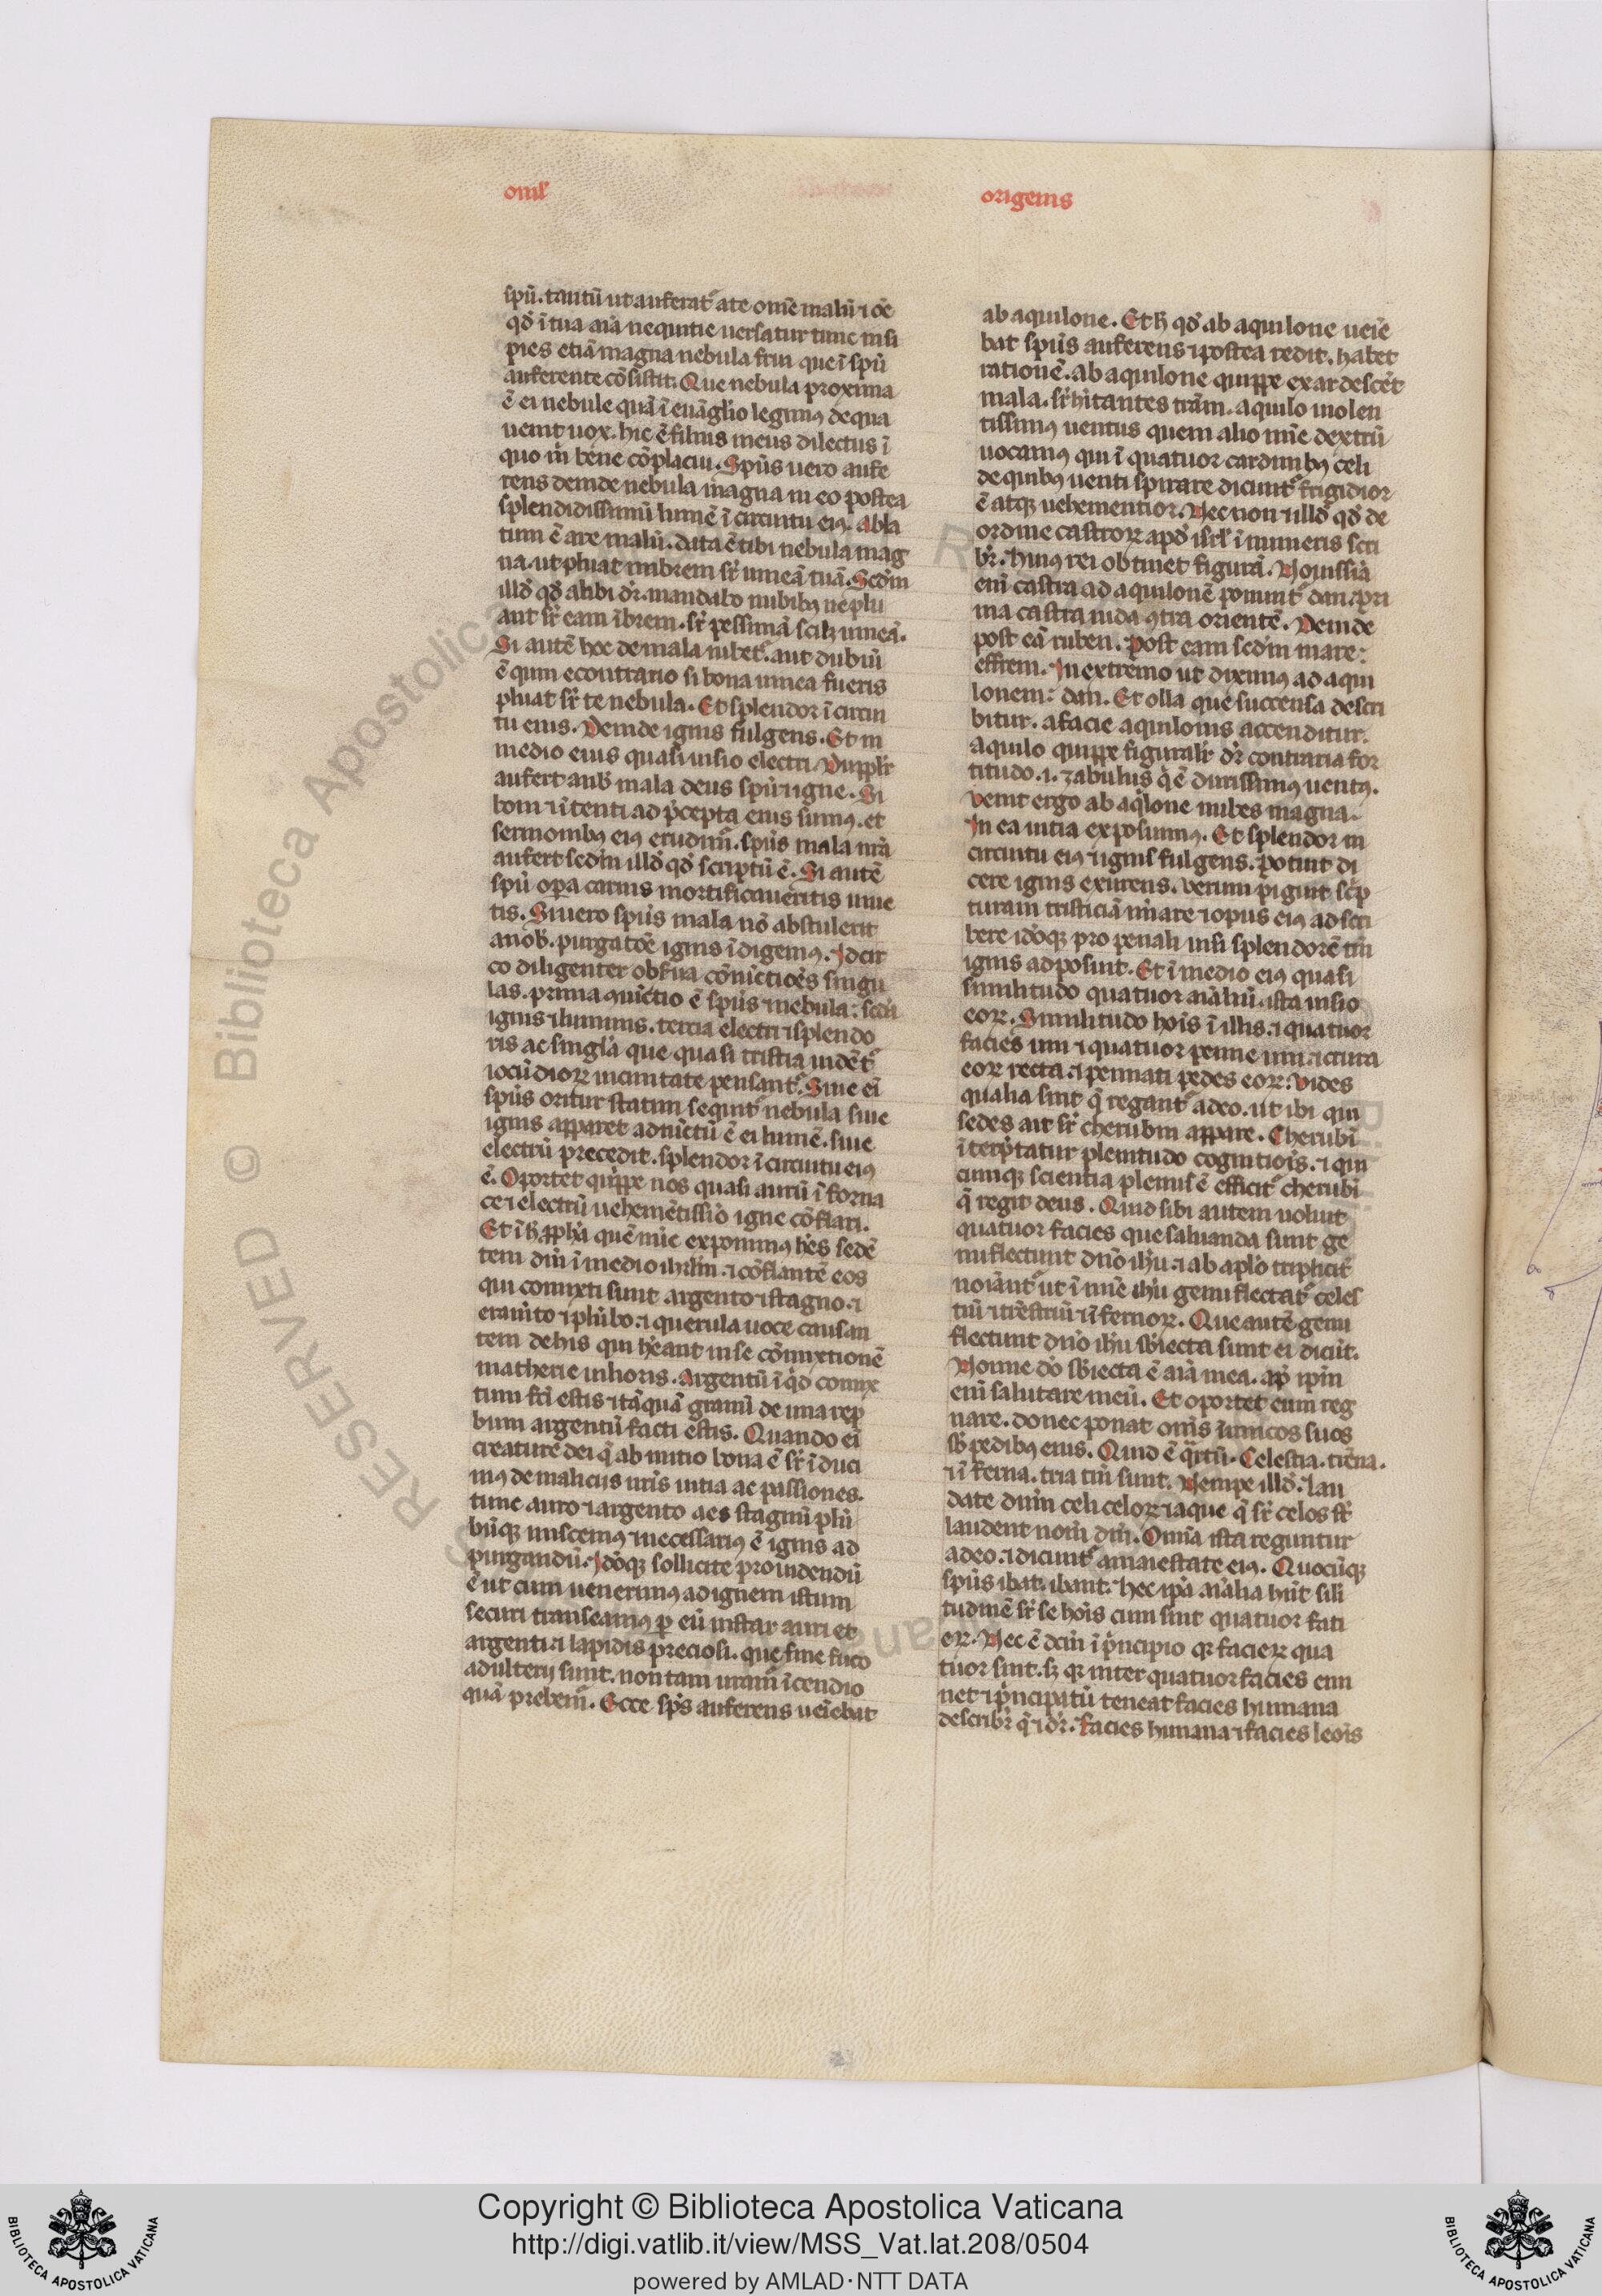 omł
origenis
spū. tantū ut auferat᷑ a te omē malū ⁊ oē
qđ ī tua aīa nequitie uersatur tunc insi
pies etiā magna nebula frui que ī spū
auferente cōsistit. Que nebula proxima
ē ei nebule quā ī euāgl̄io legimꝰ de qua
uenit uox. hic ē filius meus dilectus ī
quo m̄ bene cōplacui. Spūs uero aufe
rens deinde nebula magna in eo postea
splendidissimū lumē ī circuitu eiꝰ. abla
tum ē a te malū. data ē tibi nebula mag
na. ut pluat imbrem sr̄ uineā tuā. Scđm
illđ qđ alibi dr̄. mandabo nubibꝫ ne plu
ant sr̄ eam ībrem. sr̄ pessimā scilꝫ uineā.
Si autē hoc de mala iubet᷑. aut dubiū
ē quin econtrario si bona uinea fueris
pluat sr̄ te nebula. Et splendor ī circui
tu eius. Deinde ignis fulgens. Et in
medio eius quasi uisio electri. Duppłr
aufert a nob̄ mala deus spū ⁊ igne. Si
boni ⁊ ītenti ad p̄cepta eius sumꝰ. et
sermonibꝫ eiꝰ erudim᷑. spūs mala nr̄a
aufert scđm illđ qđ scriptū ē. Si autē
spū oꝑa carnis mortificaueritis uiue
tis. Si uero spūs mala nō abstulerit
a nob̄. purgatōe ignis īdigemꝰ. Idcir
co diligenter obẛua cōiūctiōes singu
las. prima ꝯiūctio ē spūs ⁊ nebula: scđa
ignis ⁊ luminis. tercia electri ⁊ splendo
ris ac singl̄a que quasi tristia uidēt᷑
iocūdioꝝ uicinitate pensant᷑. Siue eī
spūs oritur statim sequit᷑ nebula siue
ignis apparet adiūctū ē ei lumē. siue
electrū precedit. splendor ī circuitu eiꝰ
ē. Oportet quippe nos quasi aurū ī forna
ce ⁊ electrū uehemētissīo igne cōflari.
Et ī h̄ ꝓph̄a quē nūc exponimꝰ h̄es sedē
tem dn̄m ī medio ihrl̄m. ⁊ cōflantē eos
qui comixti sunt argento ⁊ stagno. ⁊
eramto ⁊ plūbo. ⁊ querula uoce causan
tem de his qui h̄eant in se cōmixtionē
matherie inhoris. Argentū īqđ comix
tum fc̄i estis ⁊ tāquā gramī de una rep̄
bum argentū facti estis. Quando eī
creature dei q̄ ab initio bona ē sr̄ īduci
mꝰ de malicus ur̄is uitia ac passiones.
tunc auro ⁊ argento aes stagnū plū
būqꝫ miscemꝰ ⁊ necessariꝰ ē ignis ad
purgandū. Idoqꝫ sollicite prouidendū
ē ut cum uenerimꝰ ad ignem istum
securi transeamꝰ ꝑ eū instar auri et
argenti ⁊ lapidis preciosi. que sine fuco
adulterij sunt. non tam uram᷑ īcendio
quā probem᷑. Ecce sp̄s auferens ueīebat
ab aquilone. Et h̄ qđ ab aquilone ueīe
bat spūs auferens ⁊ postea redit. habet
rationē. Ab aquilone quippe exardescēt
mala. sr̄ h̄itantes tr̄am. aquilo uiolen
tissimꝰ uentus quem alio nīe dextrū
uocamꝰ qui ī quatuor cardinibꝫ celi
de quibꝫ uenti spirare dicunt᷑ frigidior
ē atqꝫ uehementior. Nec non ⁊ illđ qđ de
ordine castroꝝ apđ isrl̄ ī numeris scri
br̄. huiꝰ rei obtinet figurā. Nouissīa
enī castra ad aquilonē ponunt᷑ dan. pri
ma castra iuda ꝯtra orientē. Deinde
post eā ruben. Post eam scđm mare:
effrem. In extremo ut diximꝰ ad aqui
lonem: dan. Et olla que succensa descri
bitur. a facie aquilonis accenditur.
aquilo quippe figuralr̄ dr̄ contraria for
titudo. ⁊. zabulus q̄ ē durissimꝰ uentꝰ.
Venit ergo ab aqīlone nubes magna.
In ea uitia exposuimꝰ. Et splendor in
circuitu eiꝰ ⁊ ignis fulgens. Potuit di
cere ignis exurens. uerum piguit scīp
turam tristiciā nr̄are ⁊ opus eiꝰ adscri
bere idoqꝫ pro penali uisi splendorē tm̄
ignis adposuit. Et ī medio eiꝰ quasi
similitudo quatuor aīaliū. ista uisio
eoꝝ. Similitudo hoīs ī illis. ⁊ quatuor
facies uni ⁊ quatuor penne uni. ⁊ crura
eoꝝ recta. ⁊ pennati pedes eoꝝ. Vides
qualia sint q̄ regant᷑ a deo. ut ibi qui
sedes ait sr̄ cherubin appare. Cherubī
īterp̄tatur plenitudo cognitiōis. ⁊ qui
cumqꝫ scientia plenus ē efficit᷑ cherubī
q̄ regit deus. Quid sibi autem uolunt
quatuor facies que saluanda sunt ge
nuflectunt dn̄o ih̄u. ⁊ ab apl̄o triplicit᷑
noīant᷑ ut ī nīe ih̄u genu flectat᷑ celes
tiū ⁊ tr̄estriū ⁊ īfernoꝝ. Que autē genu
flectunt dn̄o ih̄u sb̄iecta sunt ei dicūt.
Nonne dō sb̄iecta ē aīa mea. ap̄ ip̄m
enī salutare meū. Et oportet eum reg
nare. donec ponat om̄s īimicos suos
sb̄ pedibꝫ eius. Quid ē q̄rtū. Celestia. tr̄ena.
⁊ īferna. tria tm̄ sunt. Nempe illđ. lau
date dn̄m celi celoꝝ ⁊ aque q̄ sr̄ celos st̄
laudent nom̄ dn̄i. Om̄ia ista reguntur
a deo. ⁊ dicunt᷑ a maiestate eiꝰ. Quocūqꝫ
spūs ibat. ibant. hec ip̄a aīalia hn̄t sili
tudinē sr̄ se hoīs cum sint quatuor fati
eꝝ. Nec ē dcm̄ ī p̄ncipio qꝛ facieꝝ qua
tuor sint. sꝫ qꝛ inter quatuor facies emi
net ⁊ p̄ncipatū teneat facies humana
describr̄ q̄ ⁊ dr̄. Facies humana ⁊ facies leoīs
RESERVED © Biblioteca Apostolica
Copyright © Biblioteca Apostolica Vaticana
http://digi.vatlib.it/view/MSS_Vat.lat.208/0504
powered by AMLAD·NTT DATA
BIBLIOTECA APOSTOLICA VATICANA
BIBLIOTECA APOSTOLICA VATICANA